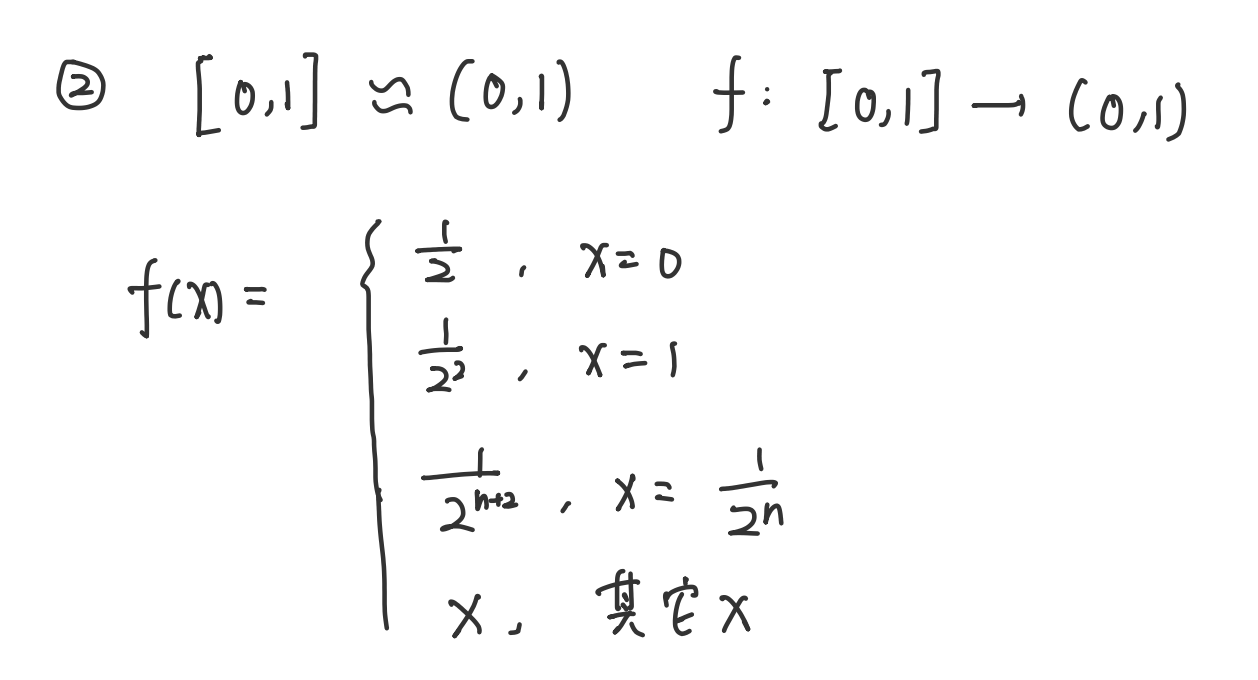 ② [0,1] ≈ (0,1) f: [0,1] → (0,1)
f(x) = { 1/2 , x = 0
1/2² , x = 1
1/2ⁿ⁺² , x = 1/2ⁿ
x , 其它 x